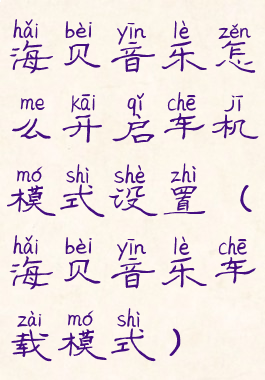 hǎi bèi yīn lè zěn
海贝音乐怎
me kāi qǐ chē jī
么开启车机
mó shì shè zhì
模式设置（
hǎi bèi yīn lè chē
海贝音乐车
zài mó shì
载模式）